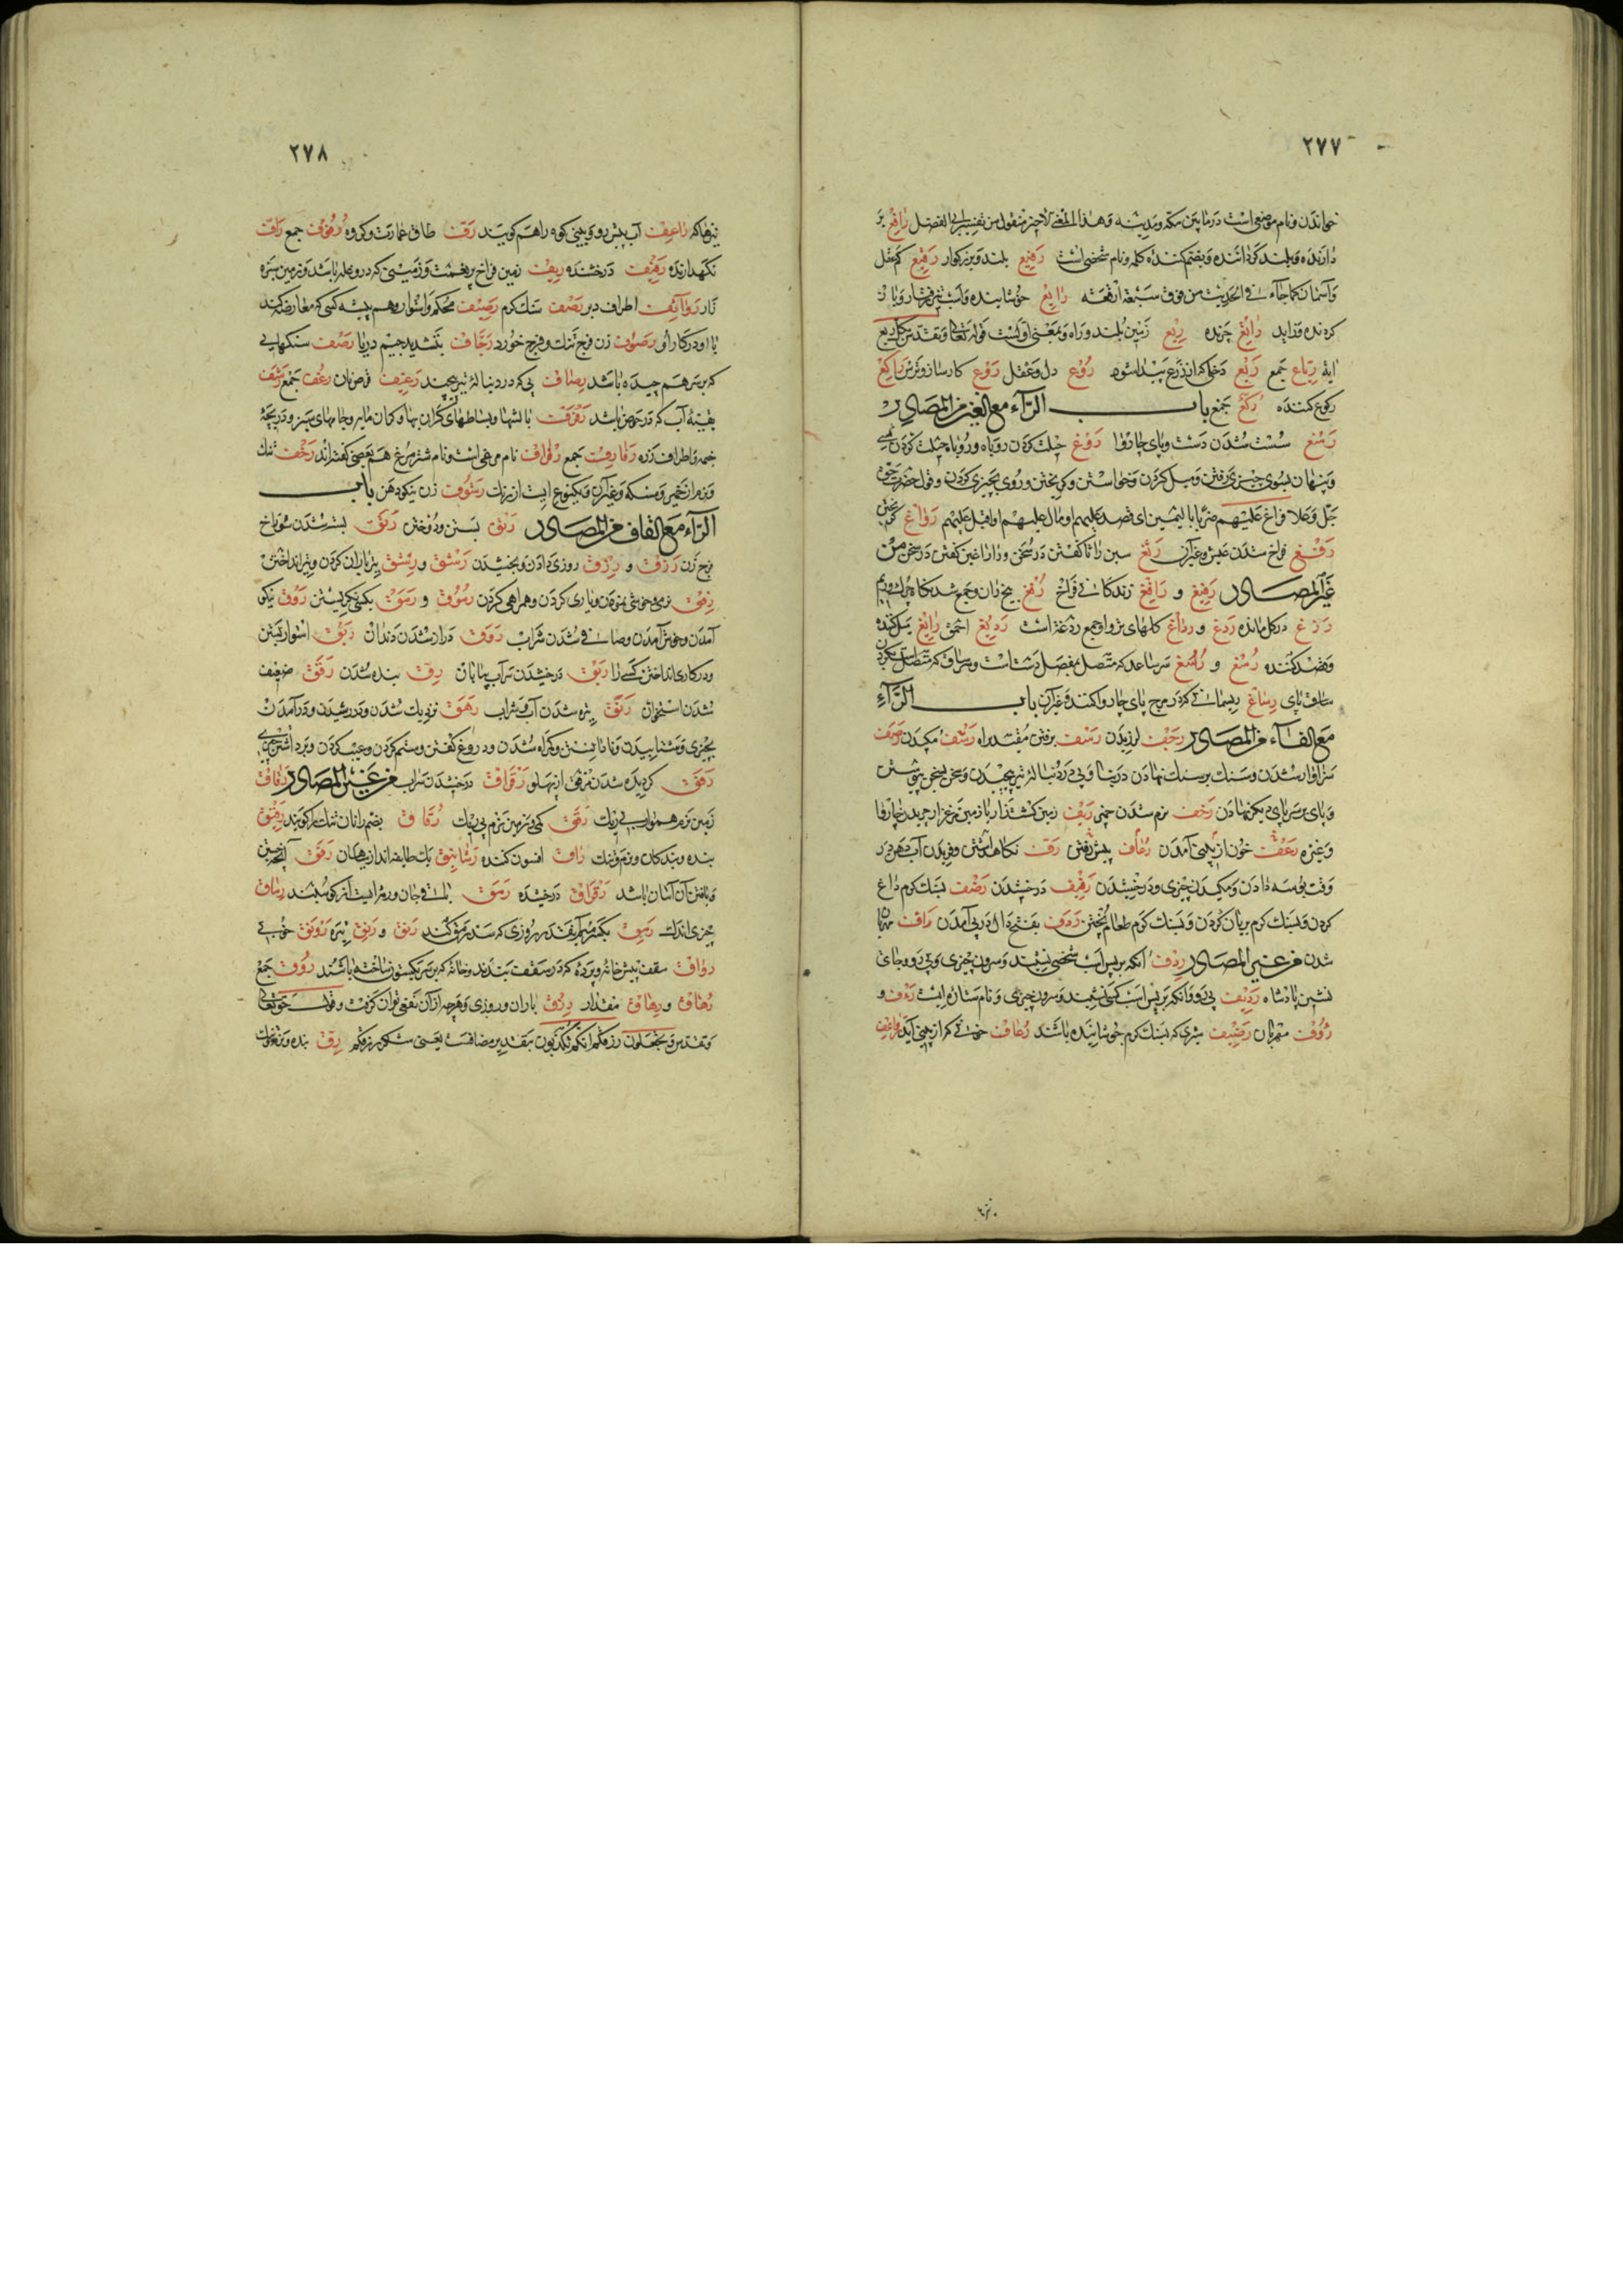 ٢٧٧
خواندن و نام موضعی است در مابین مکه و مدینه و هذا المعنی الاخیر منقول من تفسیر ابی الفضل رافع بر
دارنده و بلند کرداننده و بضم کننده کله و نام شخصی است رفیع بلند و بزرکوار رقیع کم عقل
و آسمان کما جاء فی الحدیث من فوق سبعة ارقعه رایع خوشاینده و اسب
کردنده و زاید راتع چرنده ریع زمین بلند و راه و بمعنی اولست قوله تعالی و تقدس بکل ریع
آیة رباع جمع ربع دخلی که از زرع پیدا شود روع دل و عقل روع کارساز و ترس راکع
رکوع کننده رکع جمع باب الراء مع الغین من المصادر
رسغ سست شدن دست و پای چاروا روغ حیلت کردن روباه و روباه حیلت کردن
و پنهان بسوی چیزی رفتن و میل کردن و خواستن و کریختن و روی بچیزی کردن و قول حضرت حق
جل و علا فراغ علیهم ضربا بالیمین ای قصد علیهم او مال علیهم او اقبل علیهم رواغ
رفغ فراخ شدن عیش و غیر آن رثغ سین را ثا کفتن در سخن و را را غین کفتن در سخن من
غیر المصادر رفیغ و رافغ زندکانی فراخ رفغ بیخ ران و جمع شدنکاه چرک و ریم
رزغ در کل مانده ردغ و رداغ کلهای تر و او جمع ردغة است ردیغ احمق رایغ میل کننده
و قصد کننده رسغ و رسغ سر ساعد که متصل بمفصل دست است و سر ساق که متصل است بکردن
ساق پای رساغ ریسمانی که در میخ پای چاروا کنند و غیر آن باب الراء
مع الفاء من المصادر رجف لرزیدن رسف برفتن مقید راه رشف مکیدن رصف
سزاوار شدن و سنک بر سنک نهادن در بنا و پی در دنباله تیر پیچیدن و سخن بسخن پیوستن
و پای بر سر پای دیکر نهادن رخف نرم شدن خمیر ریف زمین کشتزار یا زمین مرغزار چریدن چاروا
و غیره رعف خون از بینی آمدن رعاف پیش رفتن رف نکاه داشتن و مزیدن آب دهن در
وقت بوسه دادن و مکیدن چیزی و درخشیدن رفیف درخشیدن رضف بسنک کرم داغ
کردن و بسنک کرم بریان کردن و بسنک کرم طعام پختن ردف بفتح دال در پی آمدن رافت مهربان
شدن من غیر المصادر ردف آنکه بر پس اسب شخصی نشیند و سرون چیزی و پی رو و جای
نشین پادشاه ردیف پی رو و آنکه بر پس اسب کسی نشیند و سرون چیزی و نام ستاره ایست رءف و
رؤوف مهربان رضیف شیری که بسنک کرم جوشانیده باشند رعاف خونی که از بینی آید راعف
٢٧٨
راعف آب پیش رو و بینی کوه را هم کویند رف طاق عمارت و کروه رفوف جمع راف
نکهدارنده رفیف درخشنده ریف زمین فراخ پر نعمت و زمینی که در و غله باشد و زمین سبزه
زار روانف اطراف دبر رضف سنک کرم رصیف محکم و استوار و هم پیشه کسی که معارضه کند
با او در کار او رصوف زن فرج تنک و فرج خورد رجاف بتشدید جیم دریا رصف سنکهایی
که بر سر هم چیده باشد رصاف پی که در دنباله تیر پیچند رغیف قرص نان رغف جمع رشف
بقیه آب که در حوض باشد رفرف بالشها و بساطهای کران بها و کران مایه و جامهای سبز و دریچه
خیمه و اطراف زره رفارف جمع رفراف نام مرغی است و نام شتر مرغ هم بعضی کفته اند رخف تنک
و نرم از خمیر و مسکه و غیر آن و یکنوع است از نبات رشوف زن نیکو دهن باب
الراء مع القاف من المصادر رتق بستن و دوختن رتق بسته شدن سوراخ
فرج زن رزق و رزق روزی دادن و بخشیدن رشق و رشق تیر باران کردن و تیر انداختن
رفق نرمی و خوشی نمودن و یاری کردن و همراهی کردن رموق و رمق بکسی نکریستن روق نیکو
آمدن و خوش آمدن و صافی شدن شراب روق دراز شدن دندان ربق استوار بستن
و در کاری انداختن کسی را ریق درخشیدن سراب بیابان رق بنده شدن رقق ضعیف
شدن استخوان رنق تیره شدن آب و شراب رهق نزدیک شدن و در رسیدن و در آمدن
بچیزی و شتابیدن و نادانستن و کمراه شدن و دروغ کفتن و ستم کردن و عیب کردن
رفق کردیده شدن مرفق از پهلو رقراق درخشیدن سراب من غیر المصادر رقاق
زمین نرم هموار بی ریک رقق کمی و زمین نرم بی ریک رقاق بضم را نان تنک را کویند رقیق
بنده و بندکان و نرم و تنک راق افسون کننده رفق آنچه بحسن
و یافتن آن آسان باشد رقراق درخشیده رمق باقی جان و رمه ایست از کوسفند رماق
چیزی اندک رمق رنق و رنق تیره رونق خوبی
رواق سقف پیش خانه و پرده که در سقف بندند و خانه که بر سر یک ستون ساخته باشند روق جمع
رهاق و رهاق مقدار رزق باران و روزی و هر چه از آن نفعی توان کرفت و قوله حق تعالی
و تقدس و تجعلون رزقکم انکم تکذبون بتقدیر مضافست یعنی شکر رزقکم رق بنده و